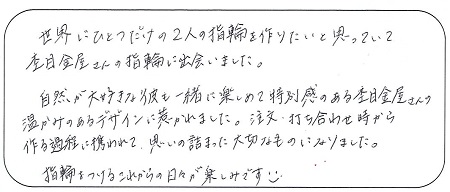 世界にひとつだけの2人の指輪を作りたいと思っていて
杢目金屋さんの指輪に出会いました。
自然が大好きな彼も一緒に楽しめて特別感のある杢目金屋さんの
温かみのあるデザインに惹かれました。注文・打ち合わせ時から
作る過程に携われて、思いの詰まった大切なものになりました。
指輪をつけるこれからの日々が楽しみです